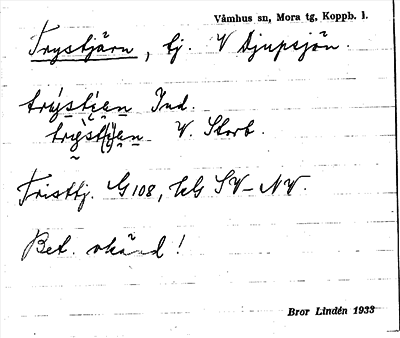 Våmhus sn, Mora tg, Koppb. l.
Trystjärn, tj. V Djupsjön.
trýstiεn Ind.
tryst(i)εn V. Storb.
Tristtj. G 108, kG SV–NV.
Bet. okänd!
Bror Lindén 1933